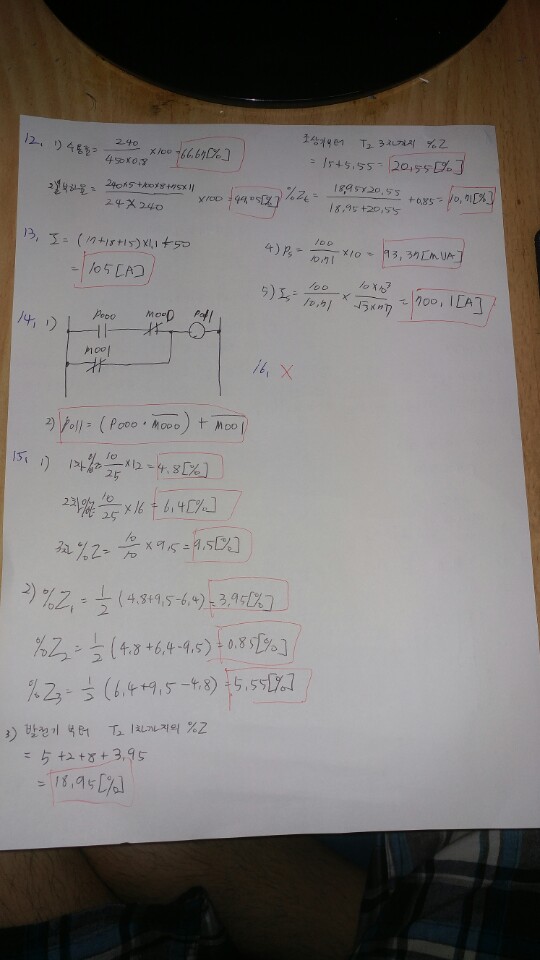 12, 1) 수용률 = 240/(450×0.8) ×100 = 66.67[%]
2) 일부하율 = (240×5+100×8+75×11)/(24×240) ×100 = 49.05[%]
13, I = (17+18+15)×1.1+50
= 105[A]
14, 1)
P000 M000 P011
M001
2) P011 = (P000 · M̅0̅0̅0̅) + M̅0̅0̅1̅
15, 1) 1차 %Z = 10/25 ×12 = 4.8[%]
2차 %Z = 10/25 ×16 = 6.4[%]
3차 %Z = 10/10 ×9.5 = 9.5[%]
2) %Z₁ = 1/2 (4.8+9.5-6.4) = 3.95[%]
%Z₂ = 1/2 (4.8+6.4-9.5) = 0.85[%]
%Z₃ = 1/2 (6.4+9.5-4.8) = 5.55[%]
3) 발전기 부터 T₂ 1차까지의 %Z
= 5+2+8+3.95
= 18.95[%]
조상기부터 T₂ 3차까지 %Z
= 15+5.55 = 20.55[%]
%Zt = (18.95×20.55)/(18.95+20.55) +0.85 = 10.71[%]
4) Ps = 100/10.71 ×10 = 93.37[MVA]
5) Is = 100/10.71 ×
= 700.1[A]
16, X